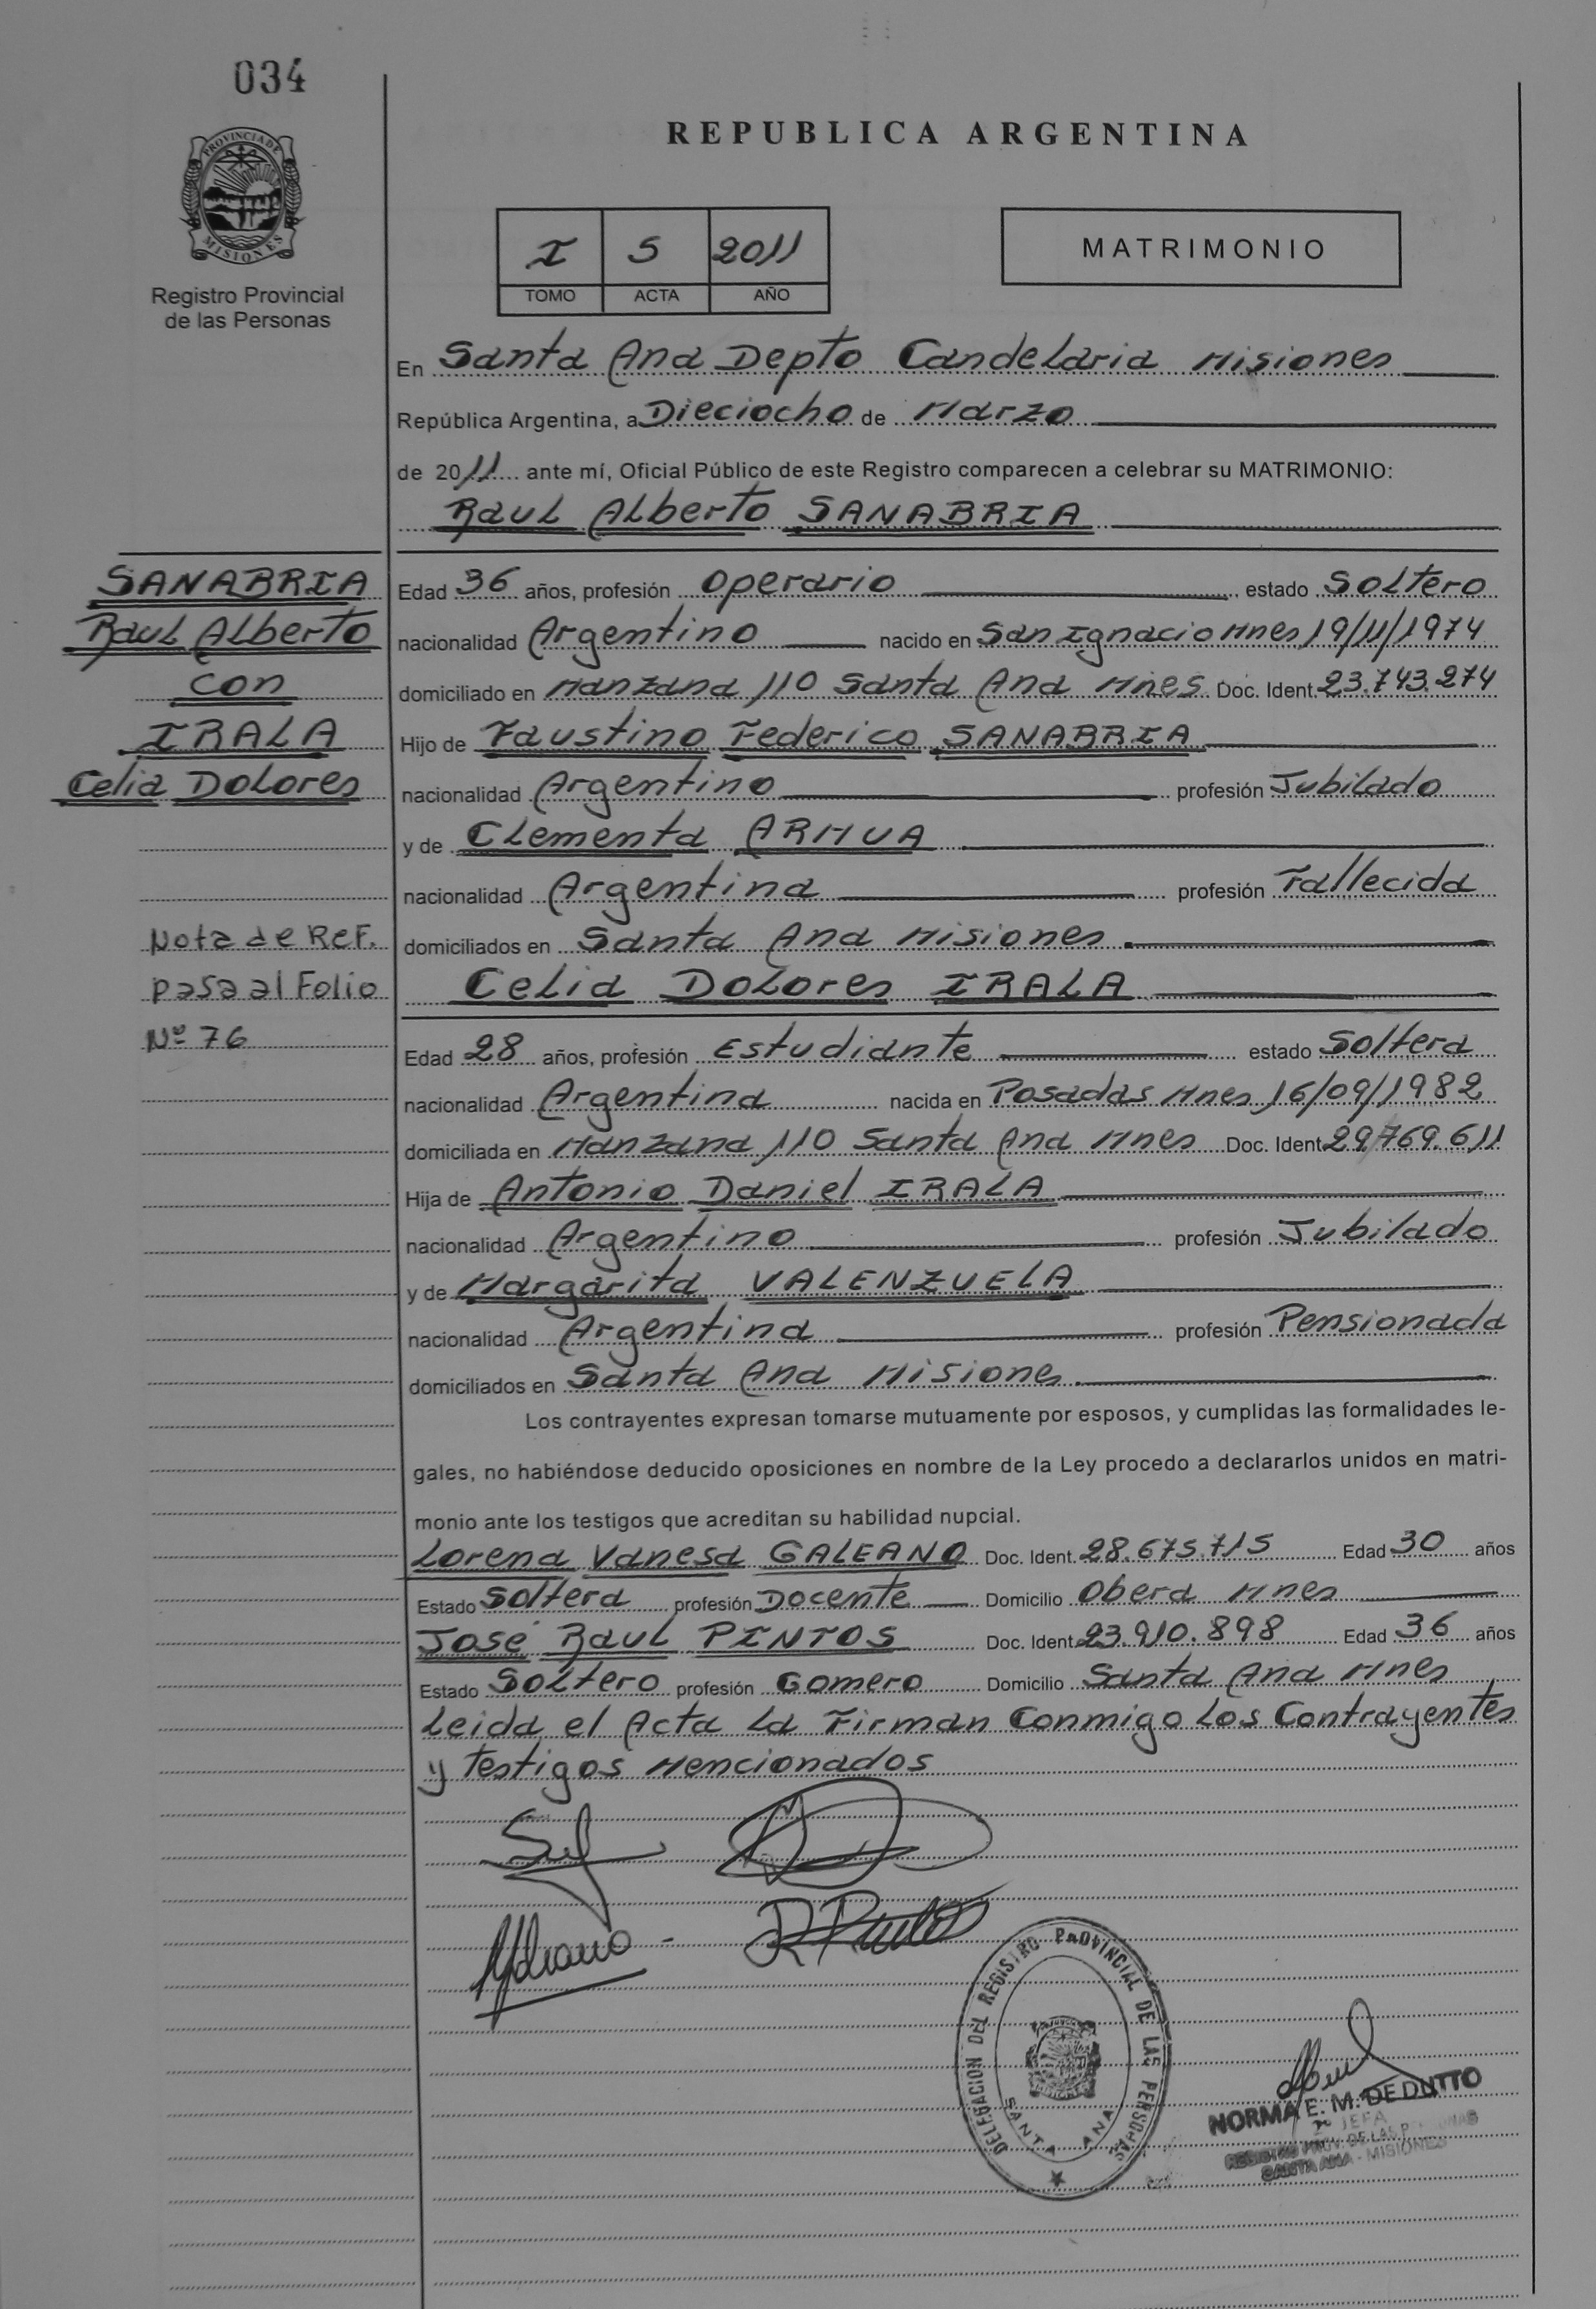 034
PROVINCIA DE
MISIONES
Registro Provincial
de las Personas
REPUBLICA ARGENTINA
I 5 2011
TOMO ACTA AÑO
MATRIMONIO
En Santa Ana Depto Candelaria Misiones
República Argentina, a Dieciocho de Marzo
de 2011 ante mí, Oficial Público de este Registro comparecen a celebrar su MATRIMONIO:
Raul Alberto SANABRIA
SANABRIA
Raul Alberto
con
IRALA
Celia Dolores
Nota de Ref.
pasa al Folio
Nº 76
Edad 36 años, profesión Operario estado Soltero
nacionalidad Argentino nacido en San Ignacio Mnes 19/11/1974
domiciliado en Manzana 110 Santa Ana Mnes Doc. Ident. 23.743.274
Hijo de Faustino Federico SANABRIA
nacionalidad Argentino profesión Jubilado
y de Clementa ARMUA
nacionalidad Argentina profesión Fallecida
domiciliados en Santa Ana Misiones
Celia Dolores IRALA
Edad 28 años, profesión Estudiante estado Soltera
nacionalidad Argentina nacida en Posadas Mnes 16/09/1982
domiciliada en Manzana 110 Santa Ana Mnes Doc. Ident 29.769.611
Hija de Antonio Daniel IRALA
nacionalidad Argentino profesión Jubilado
y de Margarita VALENZUELA
nacionalidad Argentina profesión Pensionada
domiciliados en Santa Ana Misiones
Los contrayentes expresan tomarse mutuamente por esposos, y cumplidas las formalidades le-
gales, no habiéndose deducido oposiciones en nombre de la Ley procedo a declararlos unidos en matri-
monio ante los testigos que acreditan su habilidad nupcial.
Lorena Vanesa GALEANO Doc. Ident. 28.675.715 Edad 30 años
Estado Soltera profesión Docente Domicilio Obera Mnes
José Raul PINTOS Doc. Ident 23.910.898 Edad 36 años
Estado Soltero profesión Gomero Domicilio Santa Ana Mnes
Leida el Acta La Firman Conmigo Los Contrayentes
y Testigos Mencionados
DELEGACION DEL REGISTRO PROVINCIAL DE LAS PERSONAS
SANTA ANA
NORMA E. M. DE DUTTO
JEFA
REGISTRO PROV. DE LAS PERSONAS
SANTA ANA - MISIONES